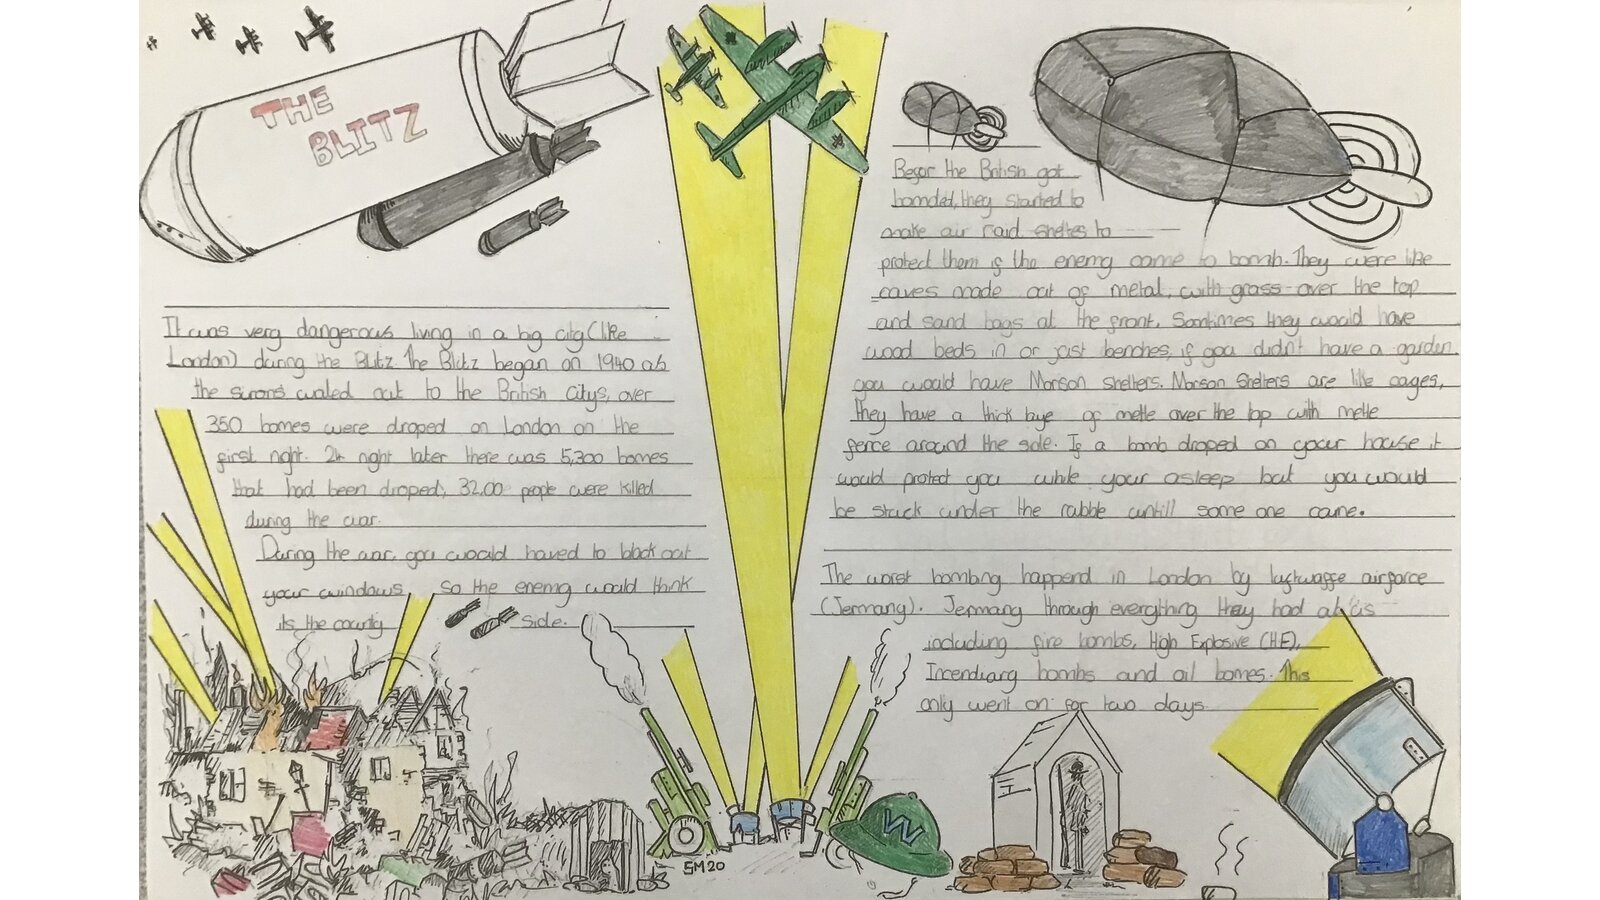 THE
BLITZ
It was very dangerous living in a big city (like
London) during the Blitz. The Blitz began on 1940 as
the sirons waled out to the British citys, over
350 bomes were droped on London on the
first night. 24 night later there was 5,300 bomes
that had been droped, 32,00 people were killed
during the war.
During the war, you would haved to black out
your windows so the enemy would think
its the county side.
Befor the British got
bombded, they started to
make air raid shelters to
protect them if the enemy came to bomb. They were like
caves made out of metal, with grass over the top
and sand bags at the front. Somtimes they would have
wood beds in or just benches, if you didn't have a garden
you would have Morson shelters. Morson Shelters are like cages,
they have a thick laye of metle over the top with metle
fence around the side. If a bomb droped on your house it
would protect you while your asleep but you would
be stuck under the rubble untill some one came.
The worst bombing happend in London by luftwaffe airforce
(Jermany). Jermany through everything they had at us
including fire bombs, High Explosive (HE),
Incendiary bombs and oil bomes. This
only went on for two days.
W
SM20